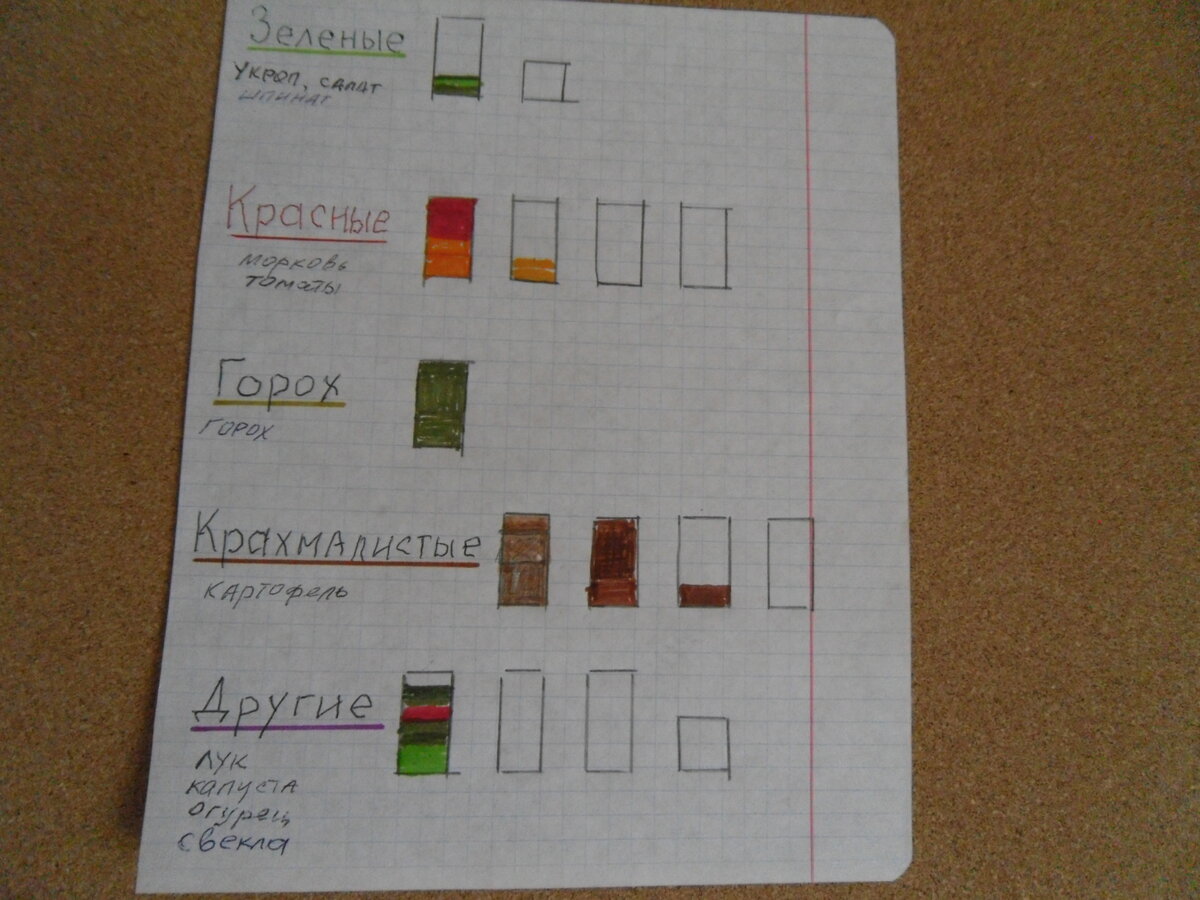 Зеленые
укроп, салат
шпинат
Красные
морковь
томаты
Горох
горох
Крахмалистые
картофель
Другие
лук
капуста
огурец
свекла